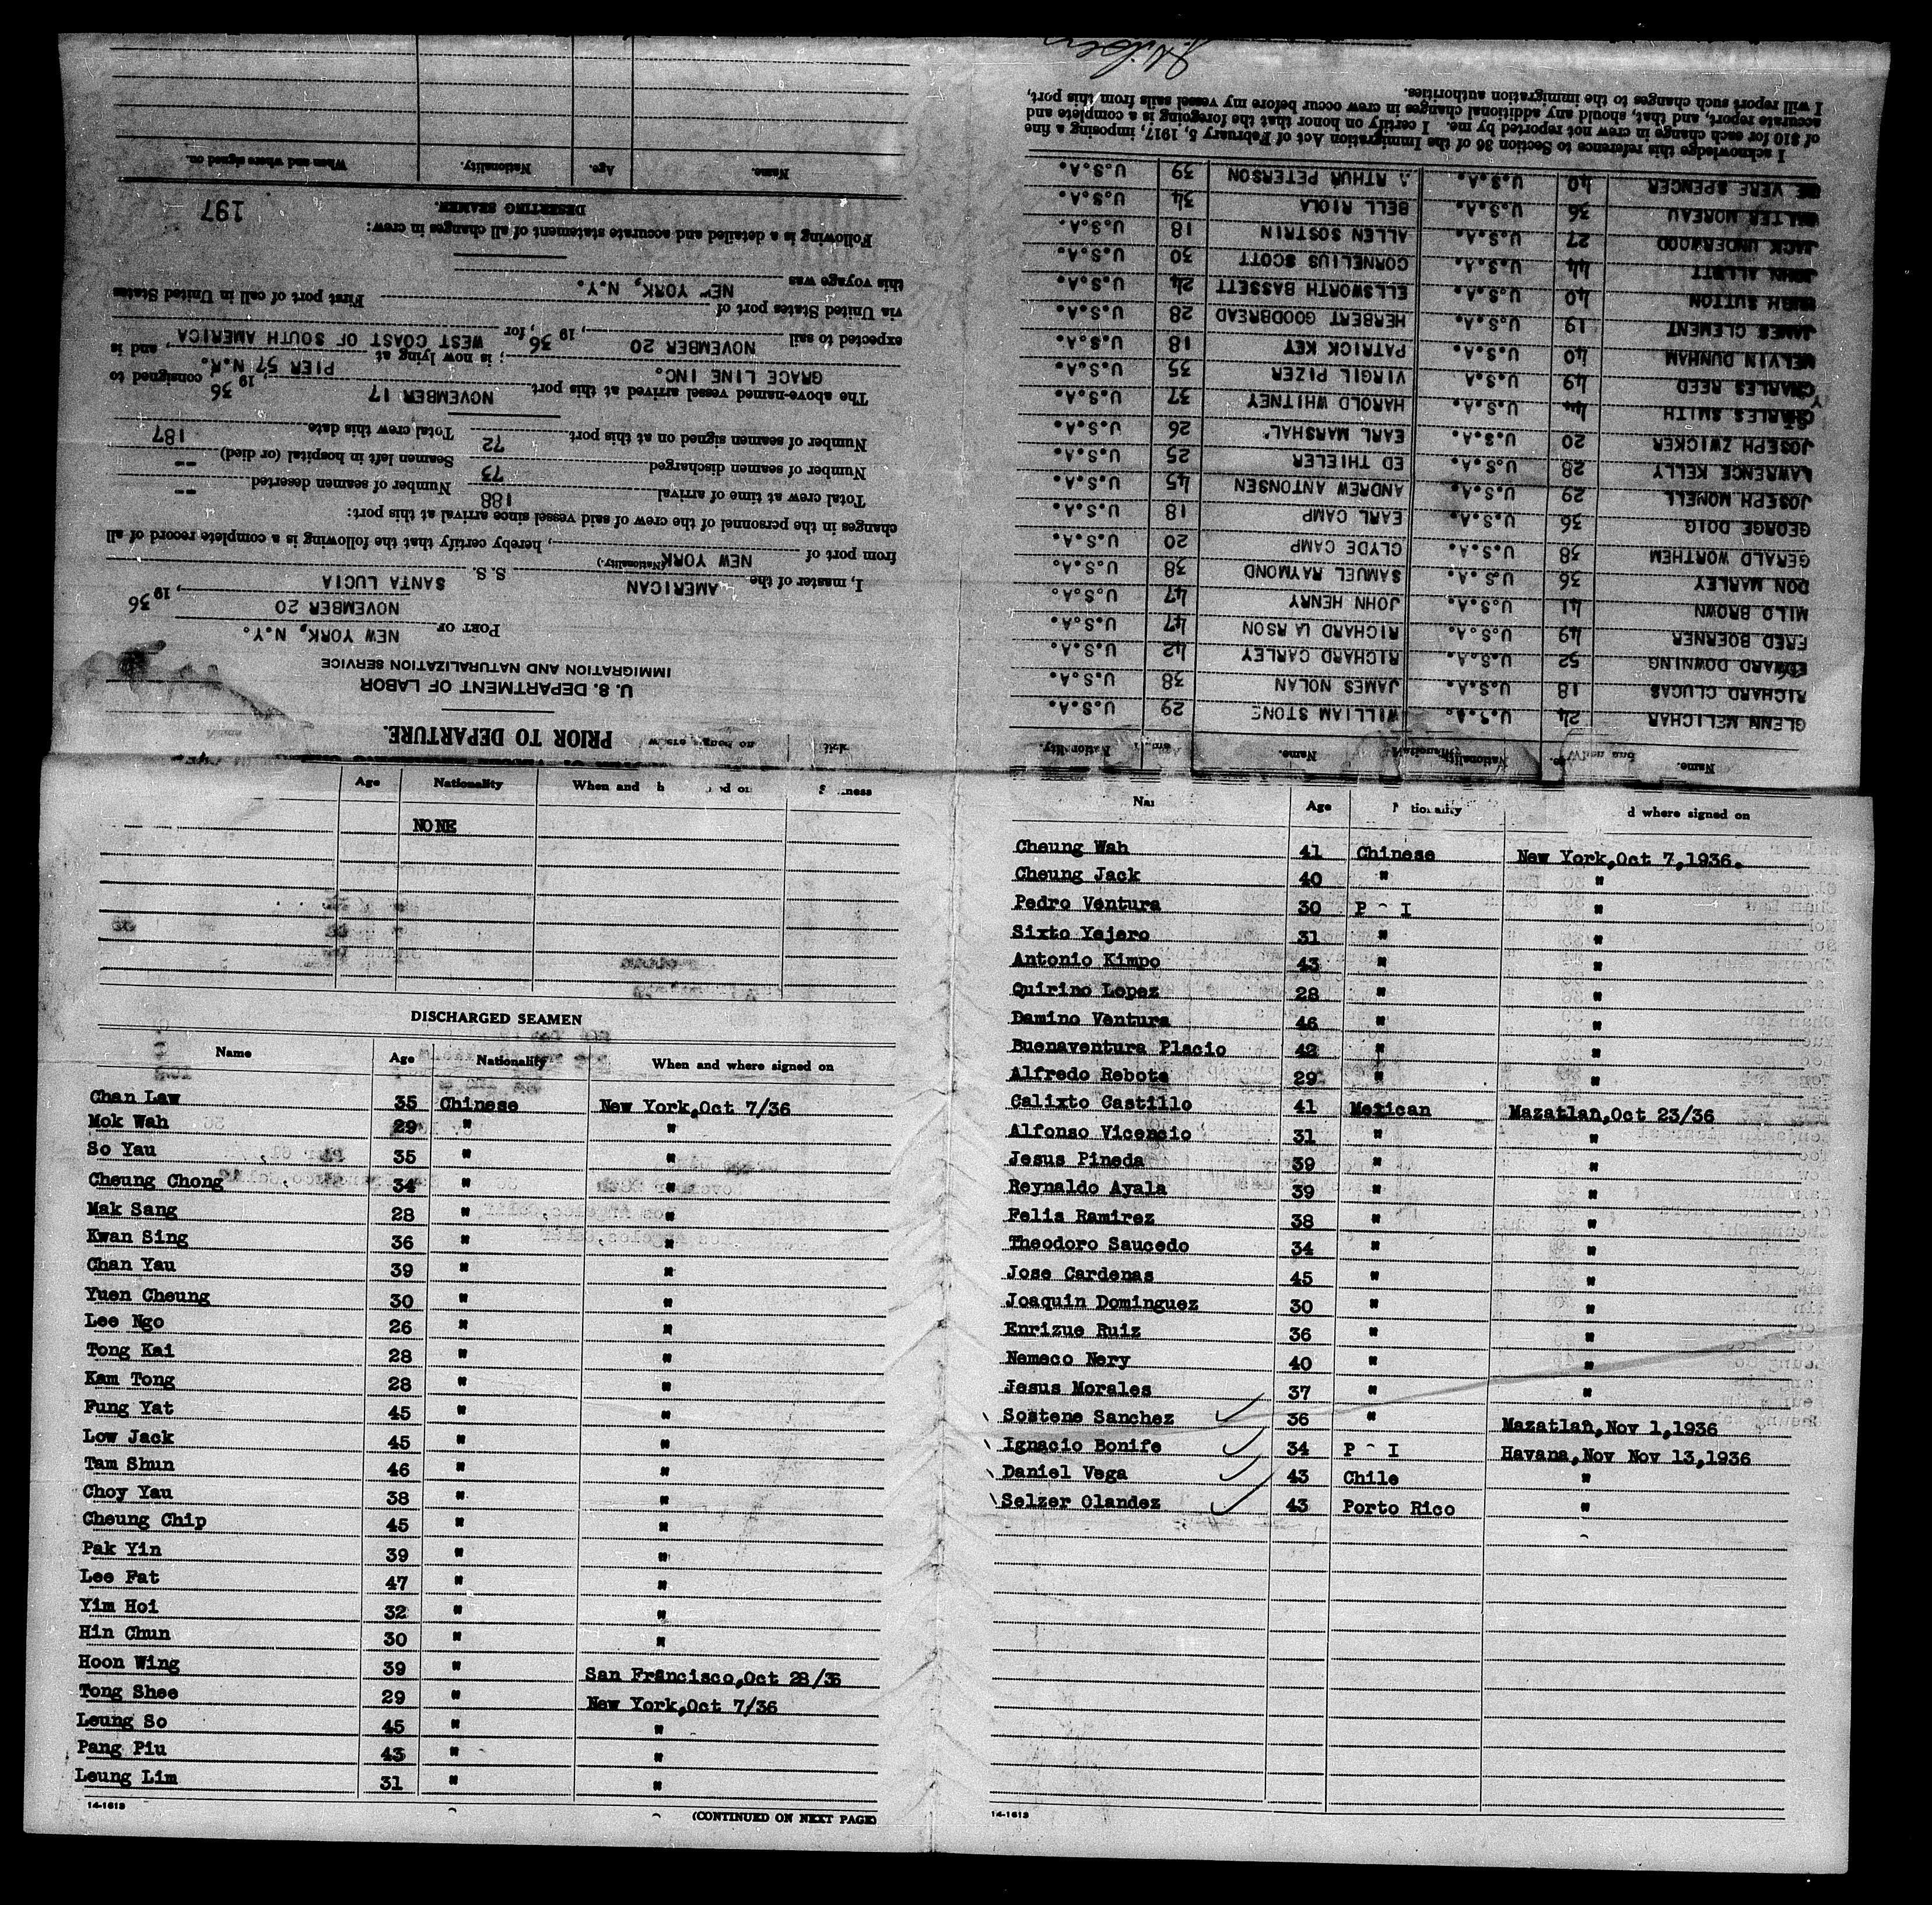 PRIOR TO DEPARTURE.
U. S. DEPARTMENT OF LABOR
IMMIGRATION AND NATURALIZATION SERVICE
PORT OF NEW YORK, N.Y.
NOVEMBER 20, 1936
I, master of the AMERICAN S. S. SANTA LUCIA
(Nationality.)
from port of NEW YORK, hereby certify that the following is a complete record of all
changes in the personnel of the crew of said vessel since arrival at this port:
Total crew at time of arrival 188 Number of seamen deserted --
Number of seamen discharged 73 Seamen left in hospital (or died) --
Number of seamen signed on at this port 72 Total crew this date 187
The above-named vessel arrived at this port NOVEMBER 17, 1936 consigned to
GRACE LINE INC.; is now lying at PIER 57 N.R., and is
expected to sail NOVEMBER 20, 1936, for WEST COAST OF SOUTH AMERICA
via United States port of First port of call in United States
this voyage was NEW YORK, N.Y.
Following is a detailed and accurate statement of all changes in crew:
DESERTING SEAMEN. 197
Name. Age. Nationality. When and where signed on.
Name. Nationality. Name. Nationality.
GLENN MELICHAR 24 U.S.A. WILLIAM STONE 29 U.S.A.
RICHARD CLUCAS 18 U.S.A. JAMES NOLAN 38 U.S.A.
EDWARD DOWNING 52 U.S.A. RICHARD CARLEY 42 U.S.A.
FRED BOERNER 49 U.S.A. RICHARD LARSON 47 U.S.A.
MILO BROWN 41 U.S.A. JOHN HENRY 47 U.S.A.
DON MARLEY 36 U.S.A. SAMUEL RAYMOND 38 U.S.A.
GERALD WORTHEM 38 U.S.A. CLYDE CAMP 20 U.S.A.
GEORGE DOIG 36 U.S.A. EARL CAMP 18 U.S.A.
JOSEPH MONELL 29 U.S.A. ANDREW ANTONSEN 45 U.S.A.
LAWRENCE KELLY 28 U.S.A. ED THIELER 25 U.S.A.
JOSEPH ZWICKER 20 U.S.A. EARL MARSHAL 26 U.S.A.
CHARLES SMITH 44 U.S.A. HAROLD WHITNEY 37 U.S.A.
CHARLES REED 49 U.S.A VIRGIL PIZER 35 U.S.A.
MELVIN DUNHAM 40 U.S.A. PATRICK KEY 18 U.S.A.
JAMES CLEMENT 19 U.S.A. HERBERT GOODBREAD 28 U.S.A.
HUGH SUTTON 40 U.S.A. ELLSWORTH BASSETT 24 U.S.A.
JOHN ALLBIT 44 U.S.A. CORNELIUS SCOTT 30 U.S.A.
JACK UNDERWOOD 27 U.S.A. ALLEN SOSTRIN 18 U.S.A.
WALTER MOREAU 36 U.S.A. BELL RIOLA 34 U.S.A.
DE VERE SPENCER 40 U.S.A. ARTHUR PETERSON 39 U.S.A.
I acknowledge this reference to Section 36 of the Immigration Act of February 5, 1917, imposing a fine
of $10 for each change in crew not reported by me. I certify on honor that the foregoing is a complete and
accurate report, and that, should any additional changes in crew occur before my vessel sails from this port,
I will report such changes to the immigration authorities.
Age Nationality When and
NONE
DISCHARGED SEAMEN
Name Age Nationality When and where signed on
Chan Law 35 Chinese New York,Oct 7/36
Mok Wah 29 " "
So Yau 35 " "
Cheung Chong 34 " "
Mak Sang 28 " "
Kwan Sing 36 " "
Chan Yau 39 " "
Yuen Cheung 30 " "
Lee Ngo 26 " "
Tong Kai 28 " "
Kam Tong 28 " "
Fung Yat 45 " "
Low Jack 45 " "
Tam Shun 46 " "
Choy Yau 38 " "
Cheung Chip 45 " "
Pak Yin 39 " "
Lee Fat 47 " "
Yim Hoi 32 " "
Hin Chun 30 " "
Hoon Wing 39 " San Francisco,Oct 28/36
Tong Shee 29 " New York,Oct 7/36
Leung So 45 " "
Pang Piu 43 " "
Leung Lim 31 " "
14-1613 (CONTINUED ON NEXT PAGE)
Age d where signed on
Cheung Wah 41 Chinese New York,Oct 7,1936.
Cheung Jack 40 " "
Pedro Ventura 30 P - I "
Sixto Yajaro 31 " "
Antonio Kimpo 43 " "
Quirino Lopez 28 " "
Damino Ventura 46 " "
Buenaventura Placio 42 " "
Alfredo Rebota 29 " "
Calixto Castillo 41 Mexican Mazatlan,Oct 23/36
Alfonso Vicencio 31 " "
Jesus Pineda 39 " "
Reynaldo Ayala 39 " "
Felis Ramirez 38 " "
Theodoro Saucedo 34 " "
Jose Cardenas 45 " "
Joaquin Dominguez 30 " "
Enrizue Ruiz 36 " "
Nemeco Nery 40 " "
Jesus Morales 37 " "
Sostene Sanchez 36 " Mazatlan,Nov 1,1936
Ignacio Bonife 34 P - I Havana,Nov Nov 13,1936
Daniel Vega 43 Chile "
Selzer Olandez 43 Porto Rico "
14-1613